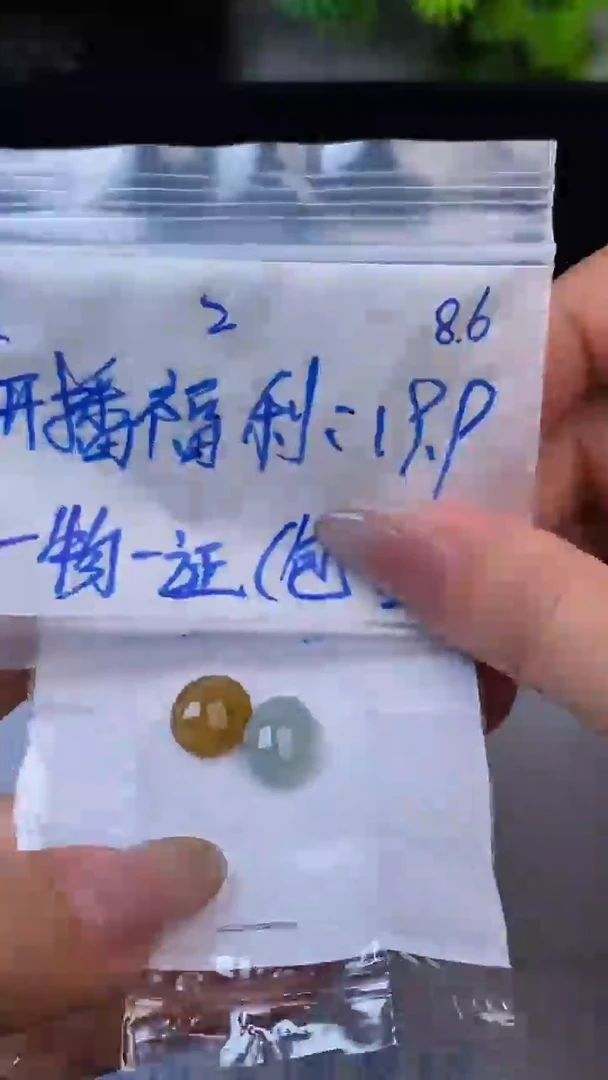 2 8.6
开播福利:19.9
一物一证(包